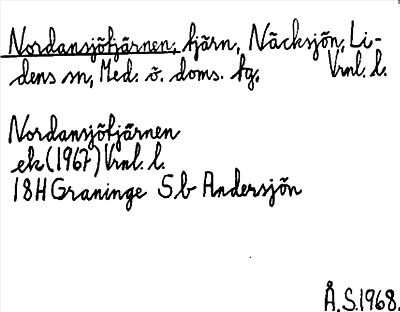 Nordansjötjärnen, tjärn, Näcksjön, Li-
dens sn, Med. ö. doms. tg, Vrnl. l.
Nordansjötjärnen
ek (1967) Vrnl. l.
18H Graninge 5b Andersjön
Å.S. 1968.